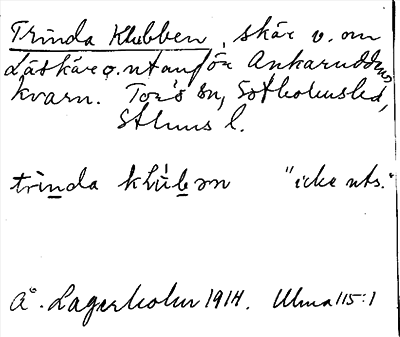 Trinda Klubben, skär v. om
Låtskär o. utanför Ankarudden,
kvarn. Torö sn, Sotholms hd,
Sthlms l.
trinda klúbən "icke uts."
Å. Lagerholm 1914. Ulma 115:1